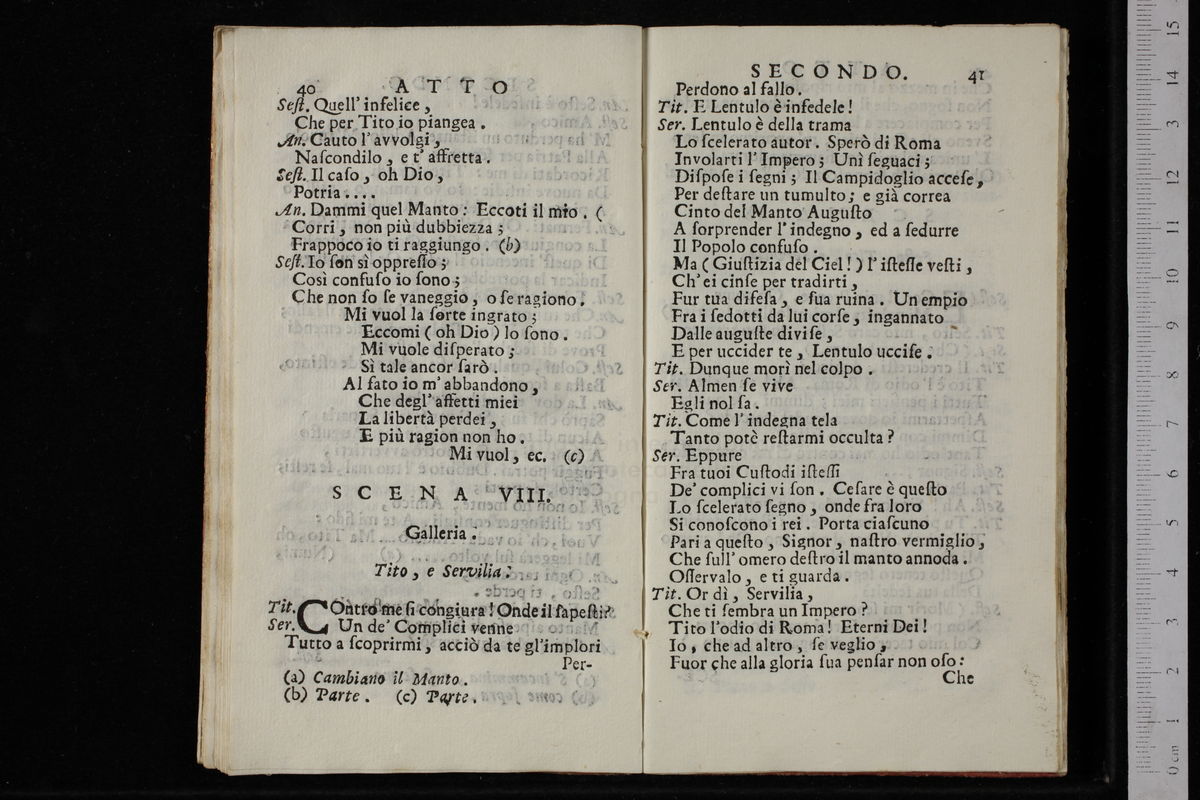 40 ATTO
Seſt. Quell' infelice,
Che per Tito io piangea.
An. Cauto l' avvolgi,
Naſcondilo, e t' affretta.
Seſt. Il caſo, oh Dio,
Potria....
An. Dammi quel Manto: Eccoti il mio. (
Corri, non più dubbiezza;
Frappoco io ti raggiungo. (b)
Seſt. Io ſon sì oppreſſo;
Così confuſo io ſono;
Che non ſo ſe vaneggio, o ſe ragiono.
Mi vuol la ſorte ingrato;
Eccomi (oh Dio) lo ſono.
Mi vuole diſperato;
Sì tale ancor ſarò.
Al fato io m' abbandono,
Che degl' affetti miei
La libertà perdei,
E più ragion non ho.
Mi vuol, ec. (c)
SCENA VIII.
Galleria.
Tito, e Servilia.
Tit. COntro me ſi congiura! Onde il ſapeſti?
Ser. Un de' Complici venne
Tutto a ſcoprirmi, acciò da te gl' implori
Per-
(a) Cambiano il Manto.
(b) Parte. (c) Parte.
SECONDO. 41
Perdono al fallo.
Tit. E Lentulo è infedele!
Ser. Lentulo è della trama
Lo ſcelerato autor. Sperò di Roma
Involarti l' Impero; Unì ſeguaci;
Diſpoſe i ſegni; Il Campidoglio acceſe,
Per deſtare un tumulto; e già correa
Cinto del Manto Auguſto
A ſorprender l' indegno, ed a ſedurre
Il Popolo confuſo.
Ma (Giuſtizia del Ciel!) l' iſteſſe veſti,
Ch' ei cinſe per tradirti,
Fur tua difeſa, e ſua ruina. Un empio
Fra i ſedotti da lui corſe, ingannato
Dalle auguſte diviſe,
E per uccider te, Lentulo ucciſe.
Tit. Dunque morì nel colpo.
Ser. Almen ſe vive
Egli nol ſa.
Tit. Come l' indegna tela
Tanto potè reſtarmi occulta?
Ser. Eppure
Fra tuoi Cuſtodi iſteſſi
De' complici vi ſon. Ceſare è queſto
Lo ſcelerato ſegno, onde fra loro
Si conoſcono i rei. Porta ciaſcuno
Pari a queſto, Signor, naſtro vermiglio,
Che full' omero deſtro il manto annoda.
Oſſervalo, e ti guarda.
Tit. Or dì, Servilia,
Che ti ſembra un Impero?
Tito l'odio di Roma! Eterni Dei!
Io, che ad altro, ſe veglio,
Fuor che alla gloria ſua penſar non oſo:
Che
15
14
3
12
11
10
9
8
7
6
5
4
3
2
1
0 cm